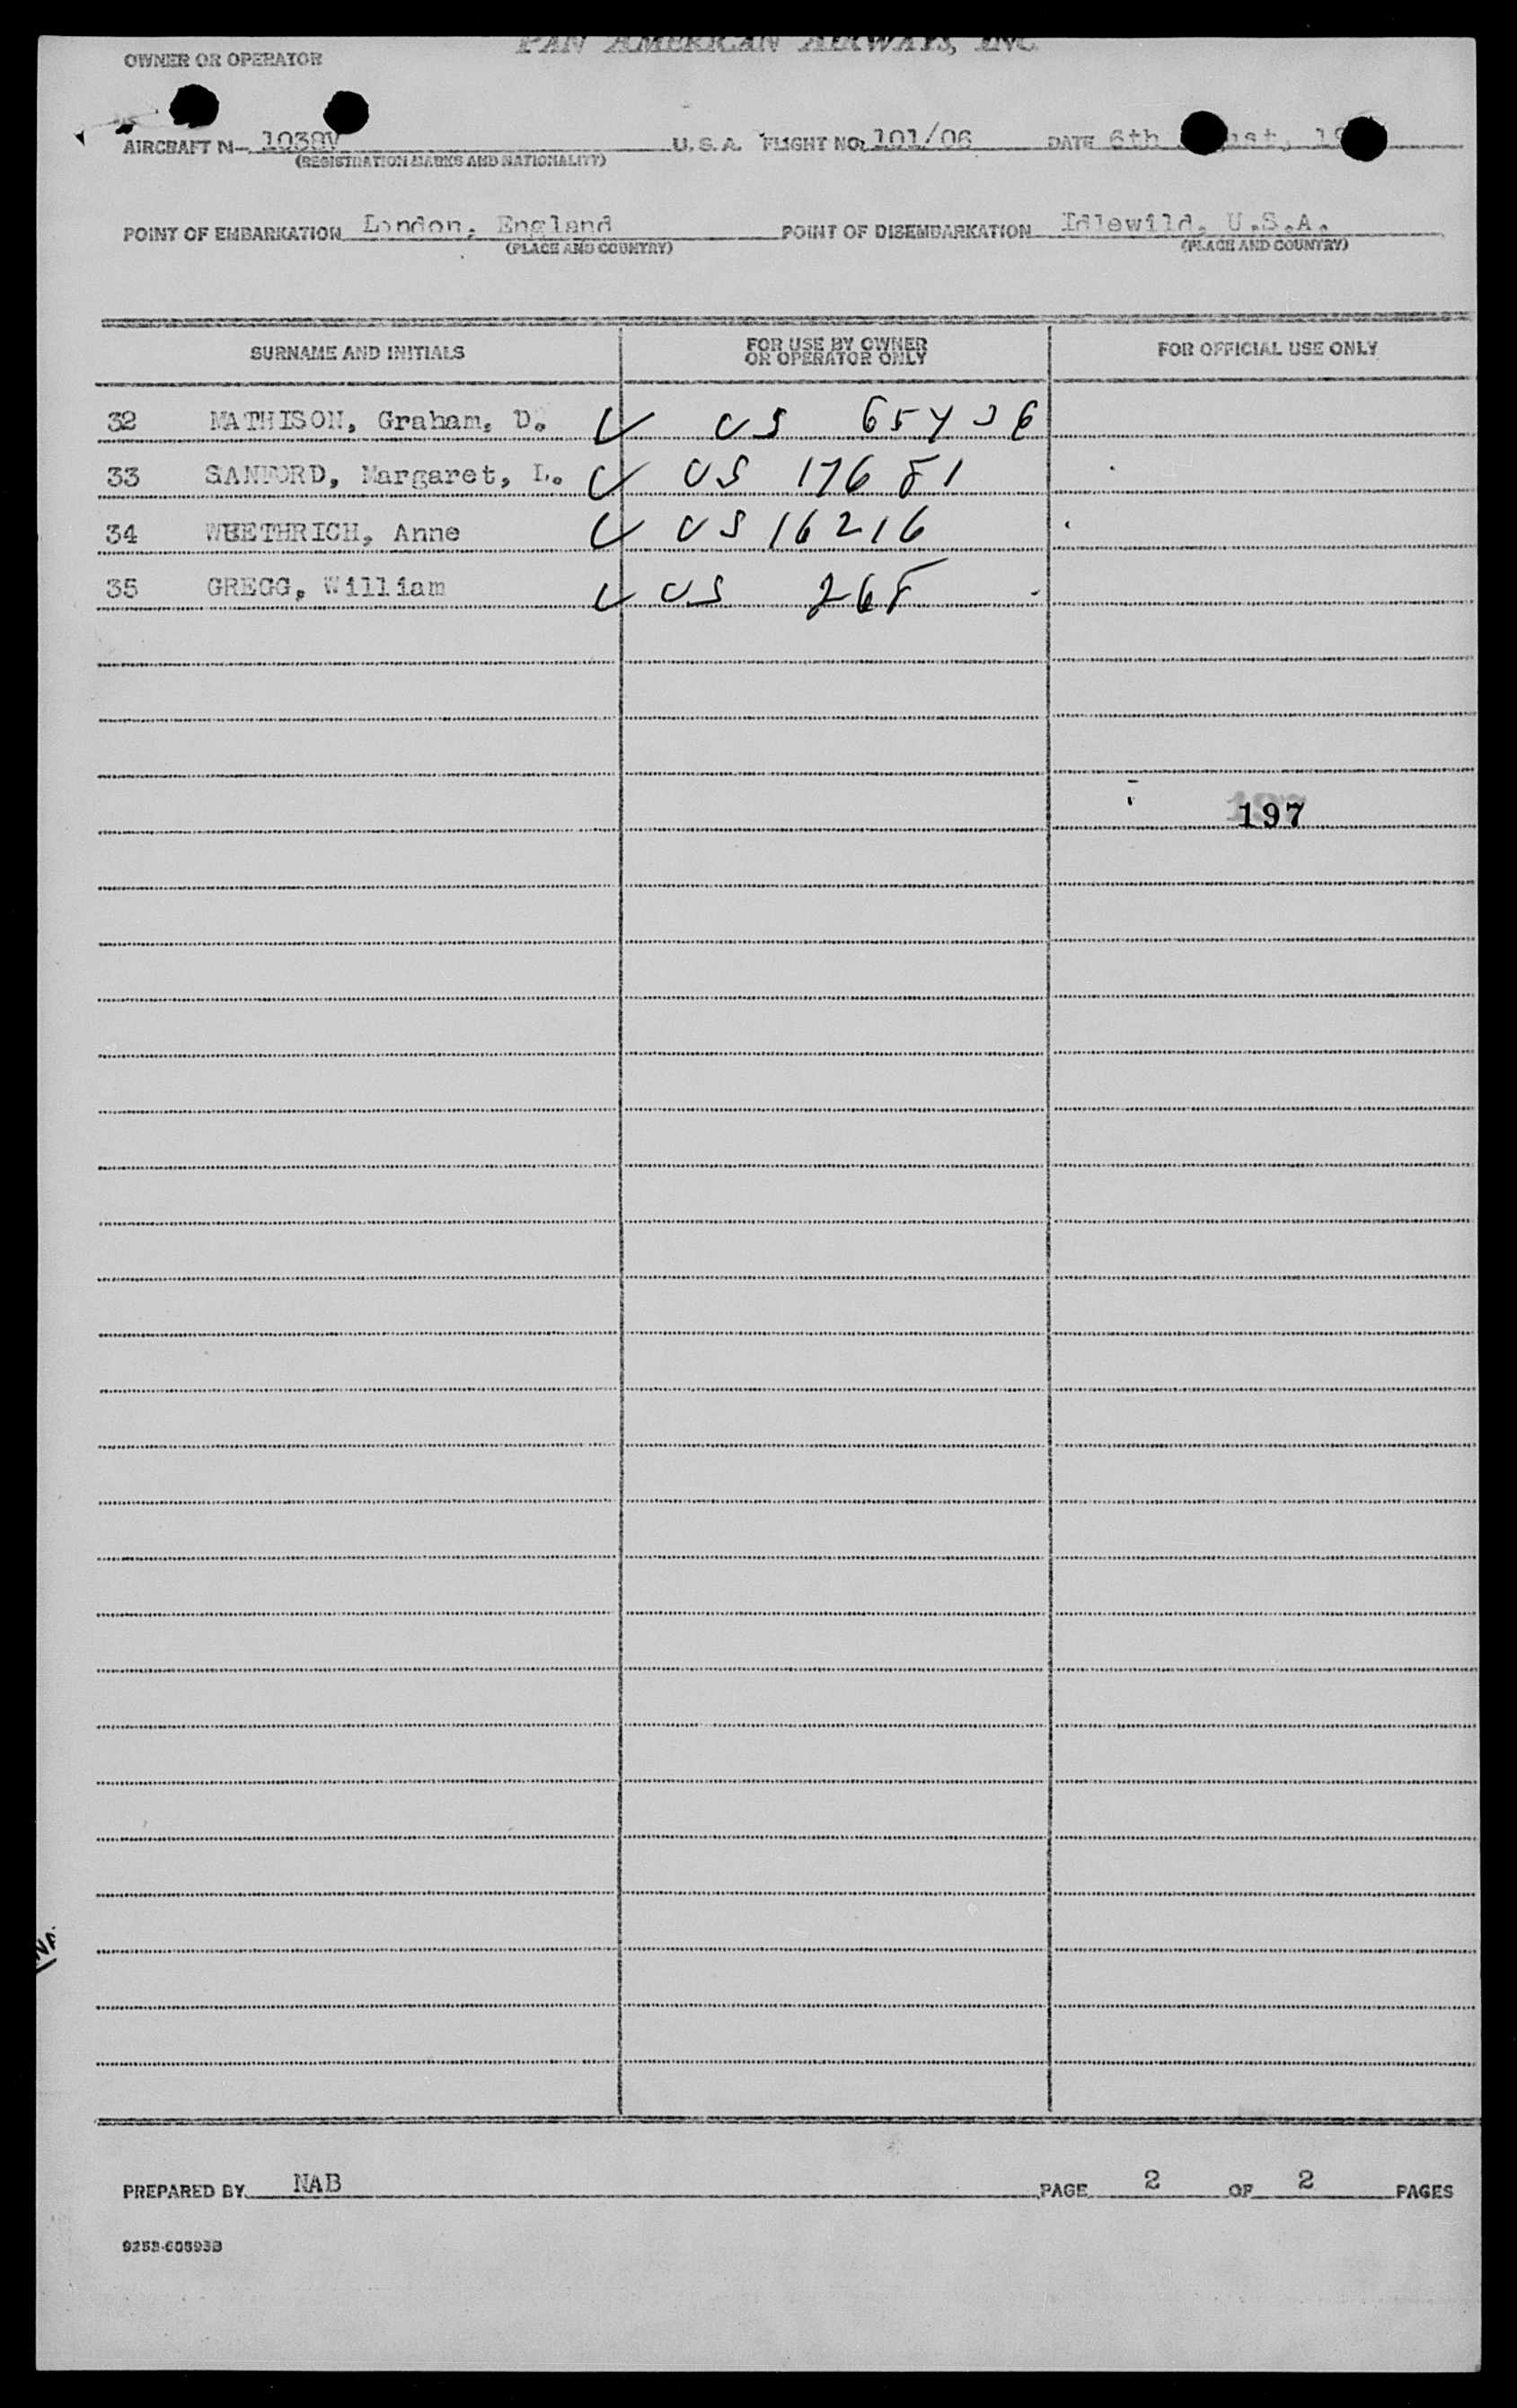 PAN AMERICAN AIRWAYS, INC.
OWNER OR OPERATOR
AIRCRAFT N- 1038V U. S. A. FLIGHT NO. 101/06 DATE 6th
(REGISTRATION MARKS AND NATIONALITY)
POINT OF EMBARKATION London, England POINT OF DISEMBARKATION Idlewild, U.S.A.
(PLACE AND COUNTRY) (PLACE AND COUNTRY)
SURNAME AND INITIALS FOR USE BY OWNER OR OPERATOR ONLY FOR OFFICIAL USE ONLY
32 MATHISON, Graham, D. US
33 SANFORD, Margaret, L. US 17681
34 Anne US 16216
35 GREGG, William US 268
197
PREPARED BY NAB PAGE 2 OF 2 PAGES